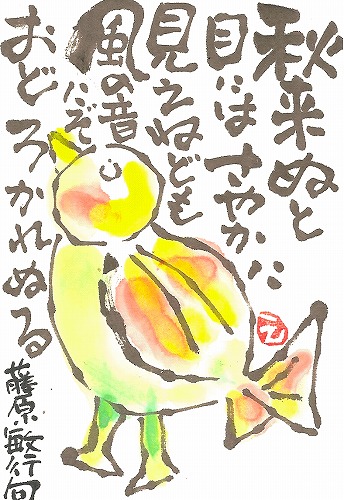 秋来ぬと
目にはさやかに
見えねども
風の音にぞ
おどろかれぬる
藤原敏行句
え